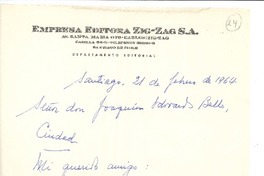 24
EMPRESA EDITORA ZIG-ZAG S.A.
SANTIAGO DE CHILE
DEPARTAMENTO EDITORIAL
Santiago, 21 de febrero de 1964.
Señor don Joaquín Edwards Bello,
Ciudad
Mi querido amigo: